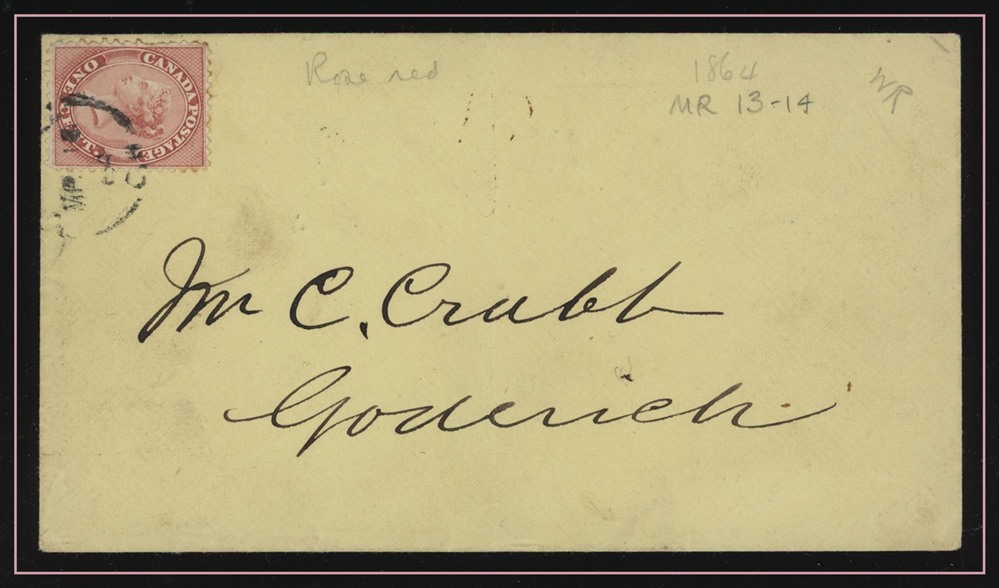 CANADA POSTAGE
ONE CENT.
Rose red
1864
MR 13-14
WR
Mr C. Crabb
Goderich